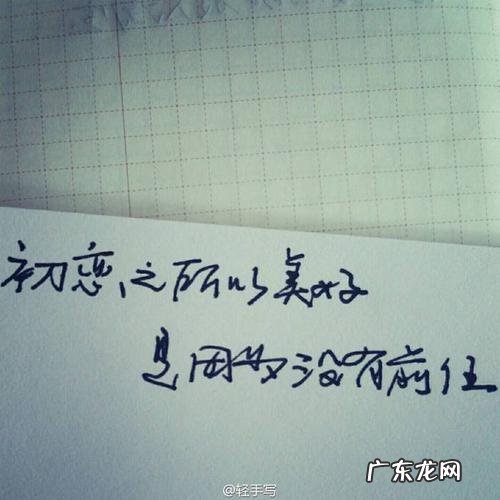 初恋之所以美好
是因为没有前任
@轻手写
广东龙网